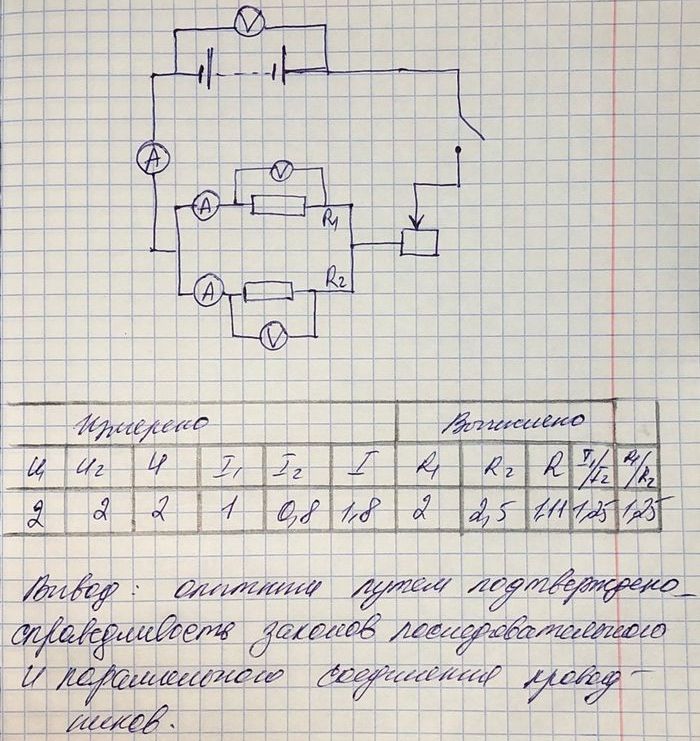 V
A
A
V
R1
A
R2
V
Измерено Вычислено
U1 U2 U I1 I2 I R1 R2 R I1/I2 R1/R2
2 2 2 1 0,8 1,8 2 2,5 1,11 1,25 1,25
Вывод: опытным путем подтверждено
справедливость законов последовательного
и параллельного соединения провод-
ников.